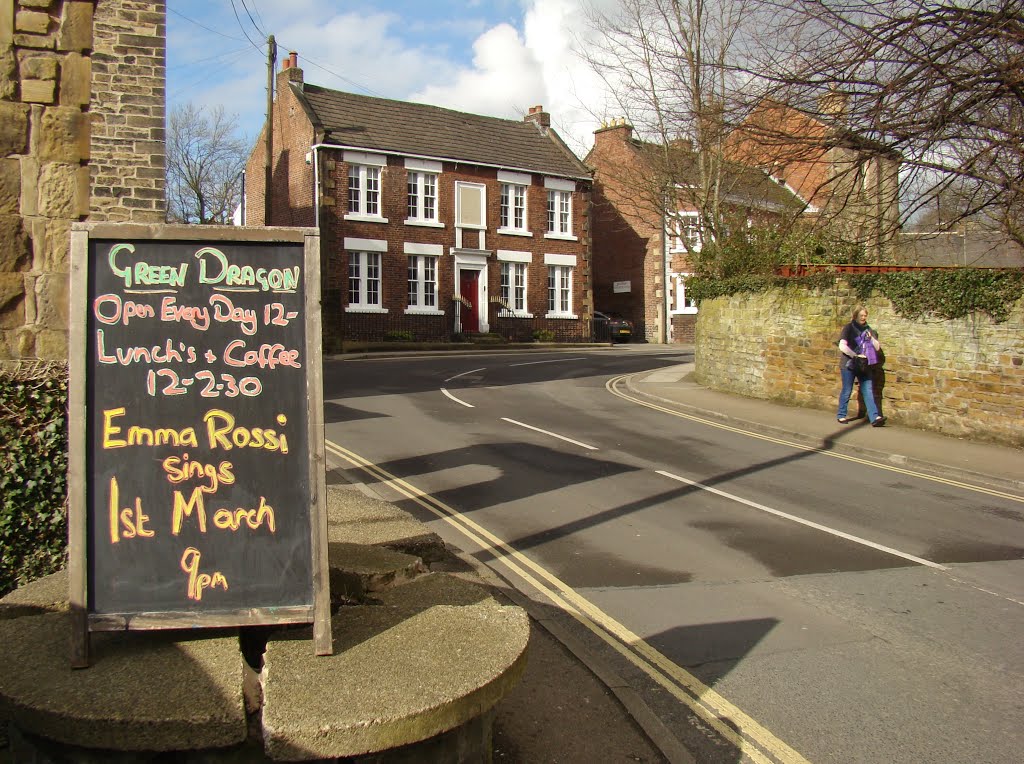 GREEN DRAGON
Open Every Day 12-
Lunch's + Coffee
12-2-30
Emma Rossi
sings
1st March
9pm